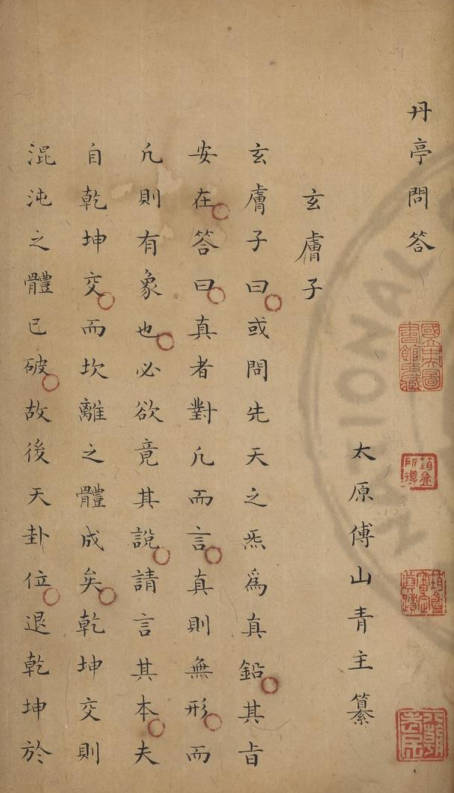 丹亭問答
太原傅山青主纂
玄膚子
玄膚子曰或問先天之炁爲真鉛其旨
安在答曰真者對凡而言真則無形而
凡則有象也必欲竟其說請言其本夫
自乾坤交而坎離之體成矣乾坤交則
混沌之體已破故後天卦位退乾坤於